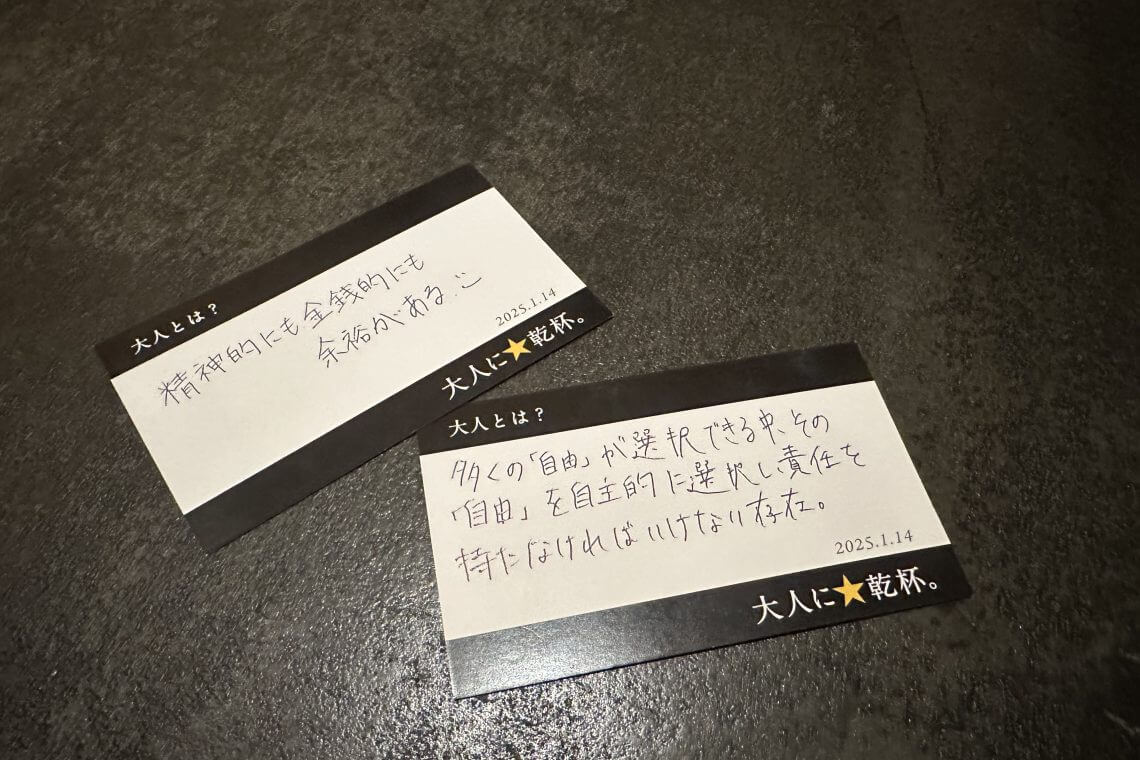 大人とは?
精神的にも金銭的にも
余裕がある
2025.1.14
大人に★乾杯。
大人とは?
多くの「自由」が選択できる中、その
「自由」を自主的に選択し責任を
持たなければいけない存在。
2025.1.14
大人に★乾杯。